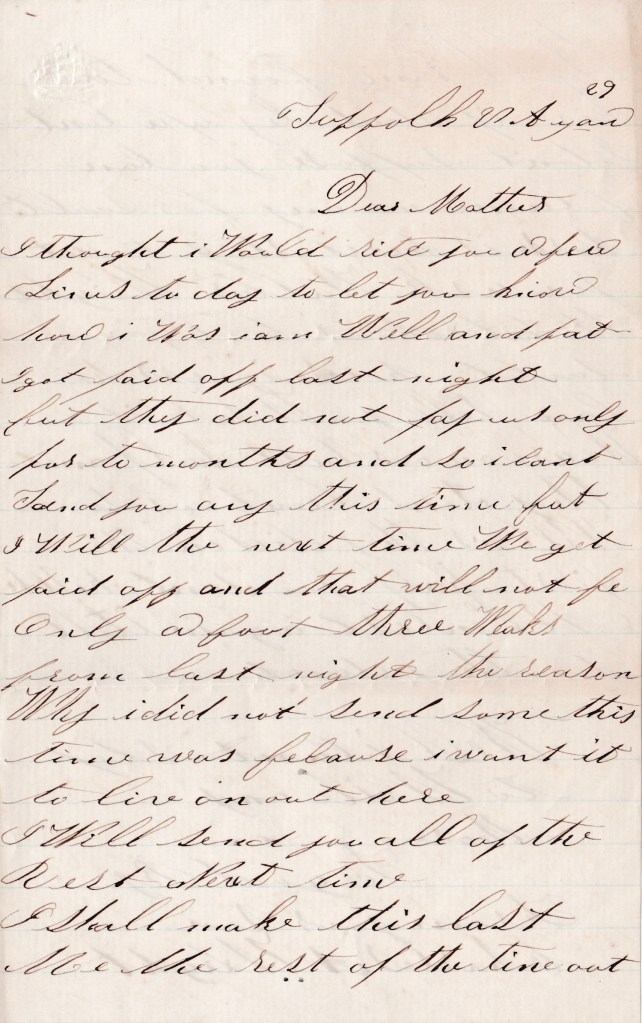 29
Suffolk VA yan
Dear Mother
I thought i Would rite you a few
Lines to day to let you know
how i Was i am Well and fat
I got paid off last night
but they did not pay us only
for to months and so i cant
Send you any this time but
I Will the next time We get
paid off and that will not be
Only a bout three Weaks
from last night the reason
Why i did not send some this
time was because i want it
to live on out here
I Will send you all of the
Rest Next time
I shall make this last
Me the rest of the time out